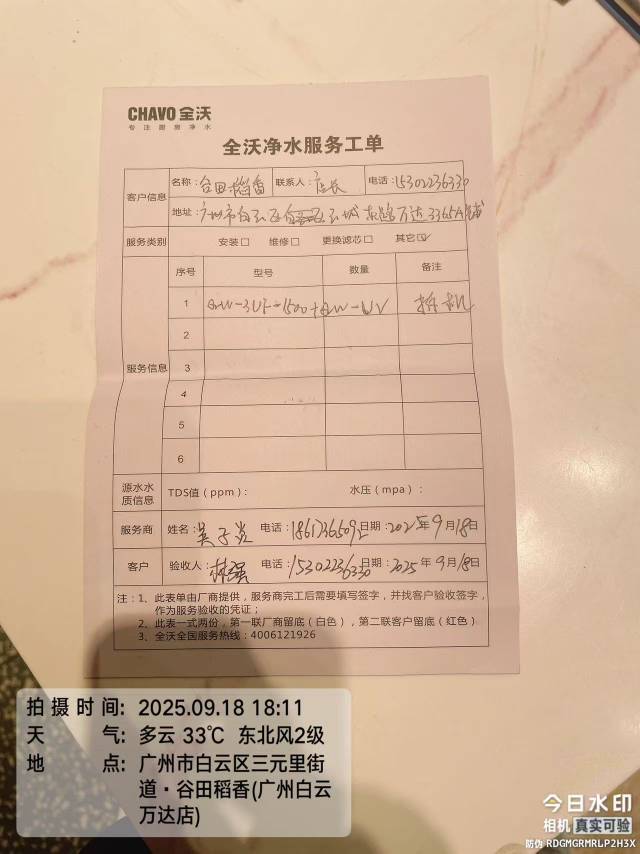 CHAVO 全沃
专注厨房净水
全沃净水服务工单
客户信息 名称: 谷田稻香 联系人: 店长 电话: 15302236330
地址: 广州市白云区 云城东路万达3365A铺
服务类别 安装□ 维修□ 更换滤芯□ 其它☑
服务信息 序号 型号 数量 备注
1 QW-3UF-1500+QW-UV 拆机
2
3
4
5
6
源水水质信息 TDS值(ppm): 水压(mpa):
服务商 姓名: 吴子炎 电话: 18617365092 日期: 2025年9月18日
客户 验收人: 林强 电话: 15302236330 日期: 2025年9月18日
注: 1、此表单由厂商提供,服务商完工后需要填写签字,并找客户验收签字,
作为服务验收的凭证;
2、此表一式两份,第一联厂商留底(白色),第二联客户留底(红色)
3、全沃全国服务热线: 4006121926
拍摄时间: 2025.09.18 18:11
天气: 多云 33℃ 东北风2级
地点: 广州市白云区三元里街
道·谷田稻香(广州白云
万达店)
今日水印
相机 真实可验
防伪 RDGMGRMRLP2H3X